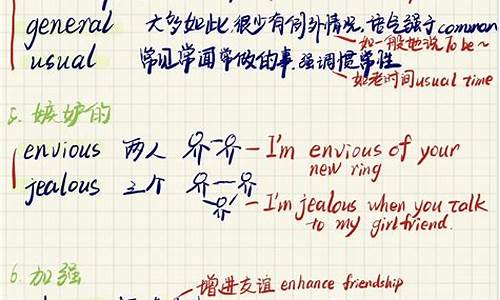 general 大多如此,很少有例外情况,语气强于common
如一般她说 to be~
usual 常见常闻常做的事,强调惯常性
如老时间usual time
5. 嫉妒的
envious 两人 — I'm envious of your
new ring
jealous 三个 — I'm jealous when you talk
to my girlfriend.
6. 加强
增进友谊 enhance friendship